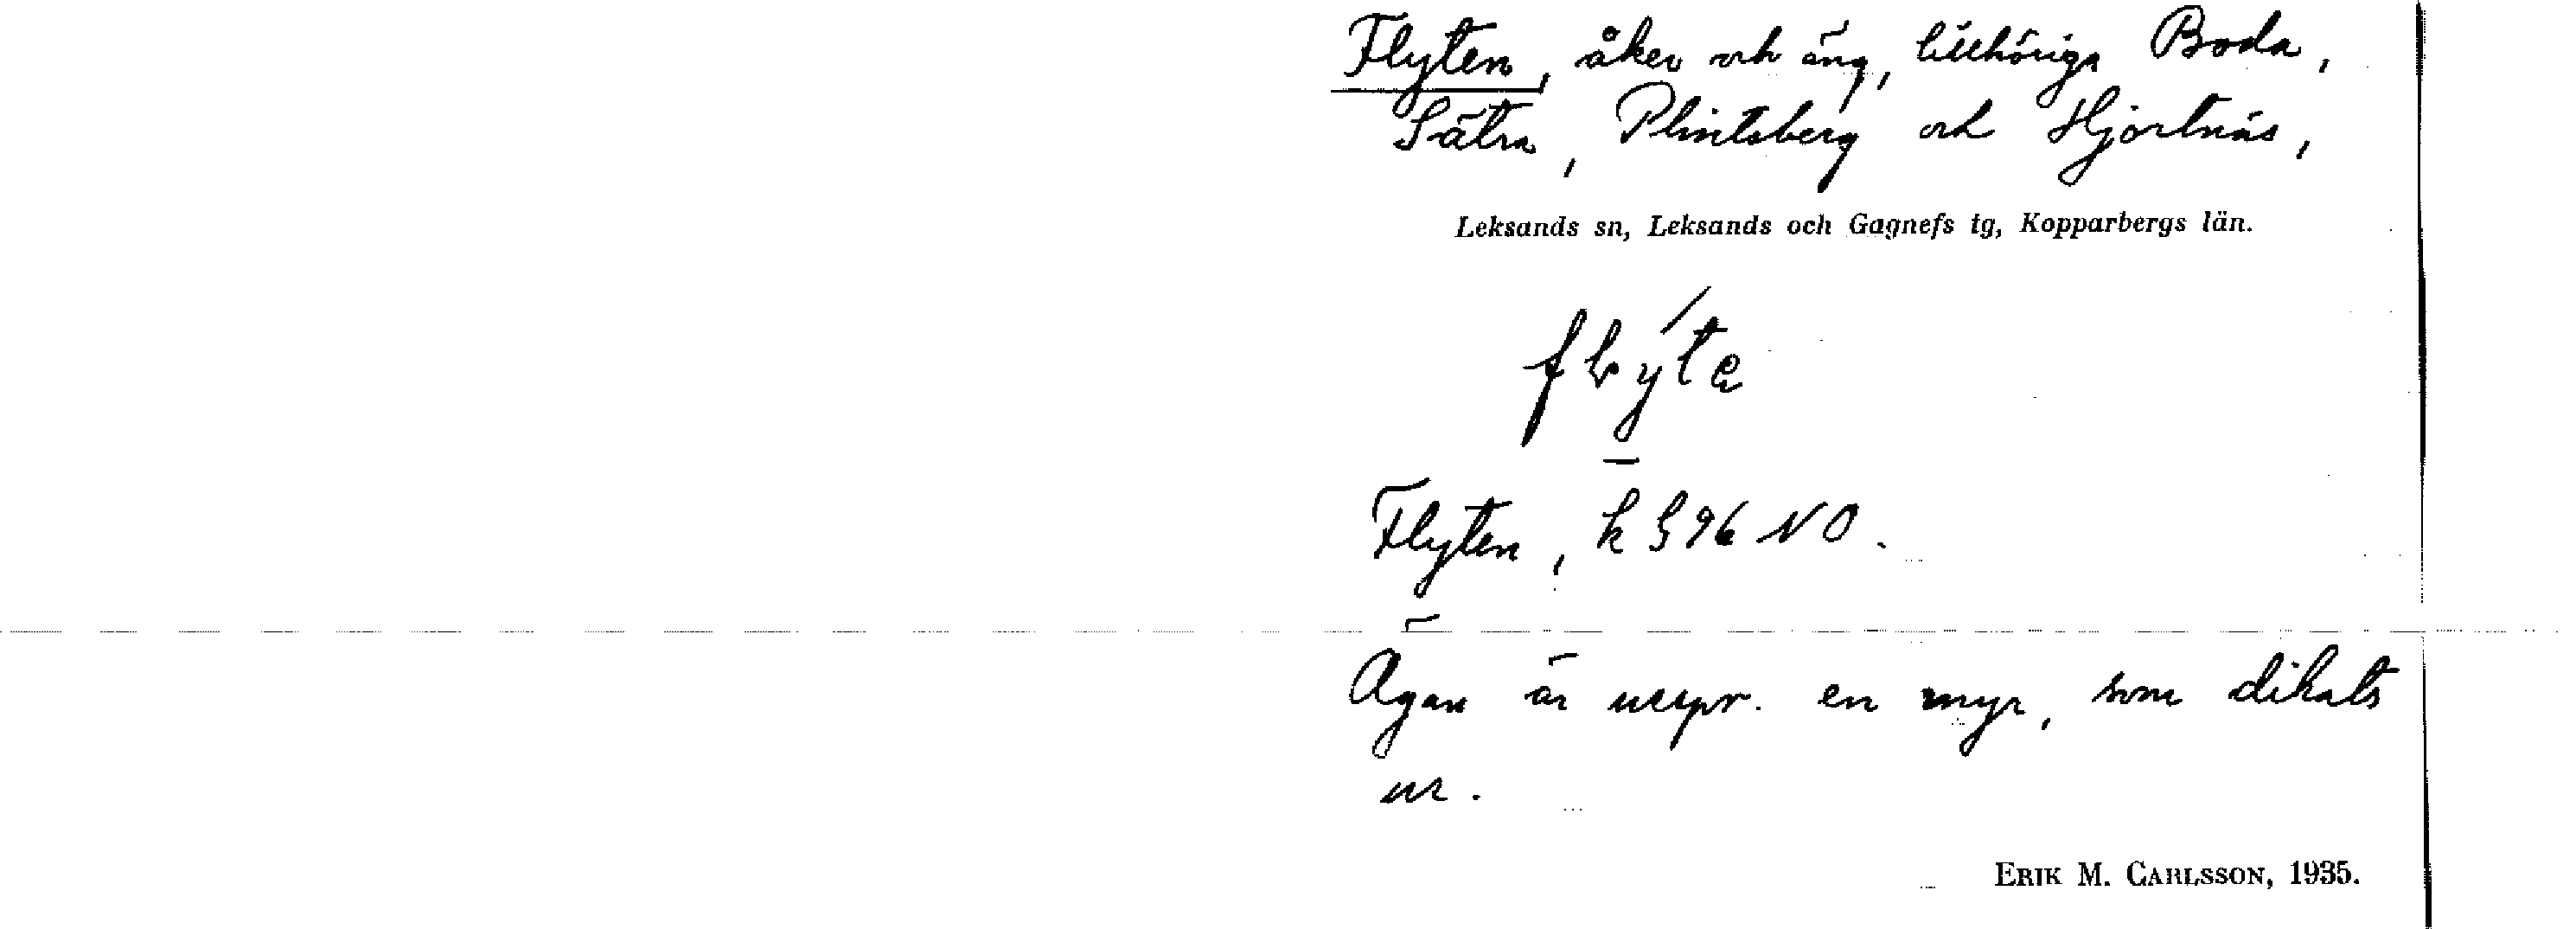 Flyten, åker och äng, tillhöriga Boda,
Sätra, Plintsberg och Hjortnäs,
Leksands sn, Leksands och Gagnefs tg, Kopparbergs län.
Flyten, k § 96 NO.
Ägan är urspr. en myr, som dikats
ur.
ERIK M. CARLSSON, 1935.